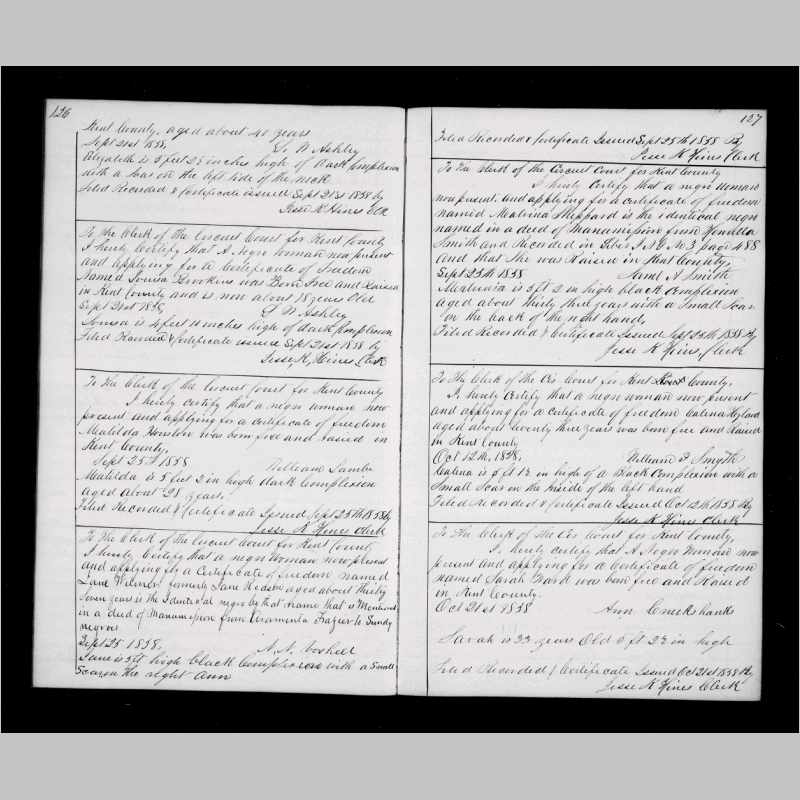 126
Kent County, aged about 40 years
Sept 21st 1858, S. N Ashley
Elizabeth is 5 feet inches high of Dark Complexion
with a Scar on the left side of the neck
Filed Recorded & Certificate issued Sept 21st 1858 by
Jesse K Hines Clk
To the Clerk of the Circuit Court for Kent County
I hereby Certify that A Negro Woman now present
and applying for a Certificate of freedom
Named Louisa was Born free and Raised
in Kent County and is now about 18 years Old
Sept 21st 1858 S N Ashley
Louisa is 4 feet 11 inches high of dark Complexion
Filed Recorded & Certificate issued Sept 21st 1858 by
Jesse, K, Hines Clerk
To the Clerk of the Circuit Court for Kent County
I hereby certify that a negro woman now
present and applying for a certificate of freedom
Matilda Houston was born free and raised in
Kent County,
Sept 25th 1858 William Lamb
Matilda is 5 feet 2 in high dark Complexion
aged about 28 years.
Filed Recorded & Certificate Issued Sept 25th 1858 by
Jesse K Hines Clerk
To the Clerk of the Circuit Court for Kent County
I hereby Certify that a negro Woman now present
and applying for a Certificate of freedom named
Jane Wilmer formerly Jane aged about thirty
Seven years is the Identical negro by that name that is Mentioned
in a deed of Manumission from Araminta Frazier to Sundry
negroes
Sept 25 1858, A. A.
Jane is 5ft high black Complexion with a Small
Scar on the right arm
127
Filed Recorded & Certificate Issued Sept 25th 1858 By
Jesse K Hines Clerk
To The Clerk of the Circuit Court for Kent County
I hereby Certify that a negro woman
now present and applying for a certificate of freedom
named Malvina Sheppard is the identical negro
named in a deed of Manumission from
Smith and Recorded in Liber J N G No 3 page 488
and that She was Raised in Kent County,
Sept 25th 1858 Saml A Smith
Malvinia is 5 ft 2 in high black complexion
aged about thirty three years with a Small Scar
on the back of the right hand,
Filed Recorded & Certificate Issued Sept 25th 1858 By
Jesse K Hines, Clerk
To The Clerk of the Cir Court for Kent County,
I, hereby Certify that a negro woman now present
and applying for a Certificate of freedom Calina Hyland
aged about twenty three years was born free and Raised
in Kent County
Oct 12th, 1858, William F. Smyth
Calina is 5 ft 1½ in high of a Black Complexion with a
Small Scar on the Inside of the left hand
Filed Recorded & Certificate Issued Oct 12th 1858 By
Jesse K Hines Clerk
To The Clerk of the Cir Court for Kent County,
I, hereby certify that A Negro Woman now
present and applying for a Certificate of freedom
named Sarah Ward was born free and Raised
in Kent County.
Oct 21st 1858 Ann Cruikshank
Sarah is 22 years Old 5 ft 2½ in high
Filed Recorded & Certificate Issued Oct 21st 1858 By
Jesse K Hines Clerk